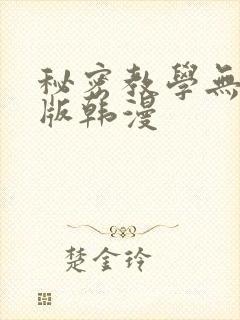 秘密教學無
版韩漫
楚金玲